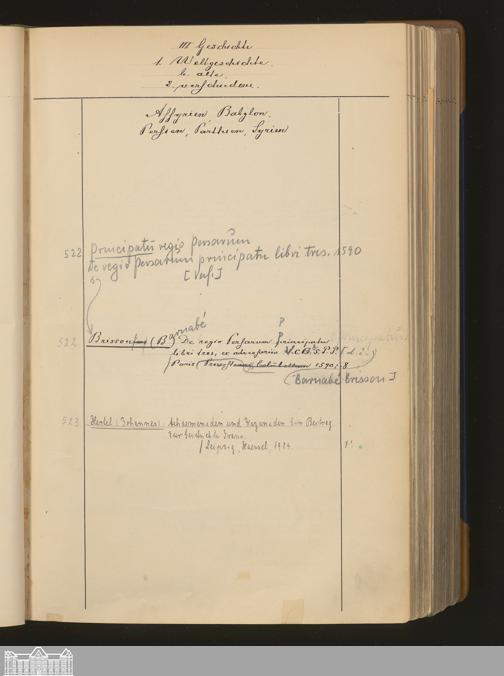 III Geschichte
1. Weltgeschichte.
b. alte.
2. verschiedene.
Assyrien, Babylon,
Persien, Parthien, Syrien
522 Principatu regio Persarum
De regio Persarum principatu libri tres. 1590
[Verf.]
522 Brisson (Barnabé) De regio Persarum principatu
libri tres, ex adversariis V. C. B. S. P. P. [d. i.
/ Paris 1590. 8
(Barnabé Brisson]
523 Hertel (Johannes): Achaemeniden und Kayaniden Ein Beitrag
zur Geschichte Irans.
/ Leipzig, Haessel 1924 1.